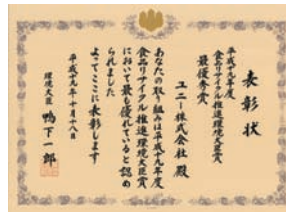 表彰状
平成十九年度
食品リサイクル推進環境大臣賞
最優秀賞
ユニー株式会社 殿
あなたの取り組みは平成十九年度
食品リサイクル推進環境大臣賞
において最も優れていると認め
られました
よってここに表彰します
平成十九年十月十八日
環境大臣 鴨下一郎